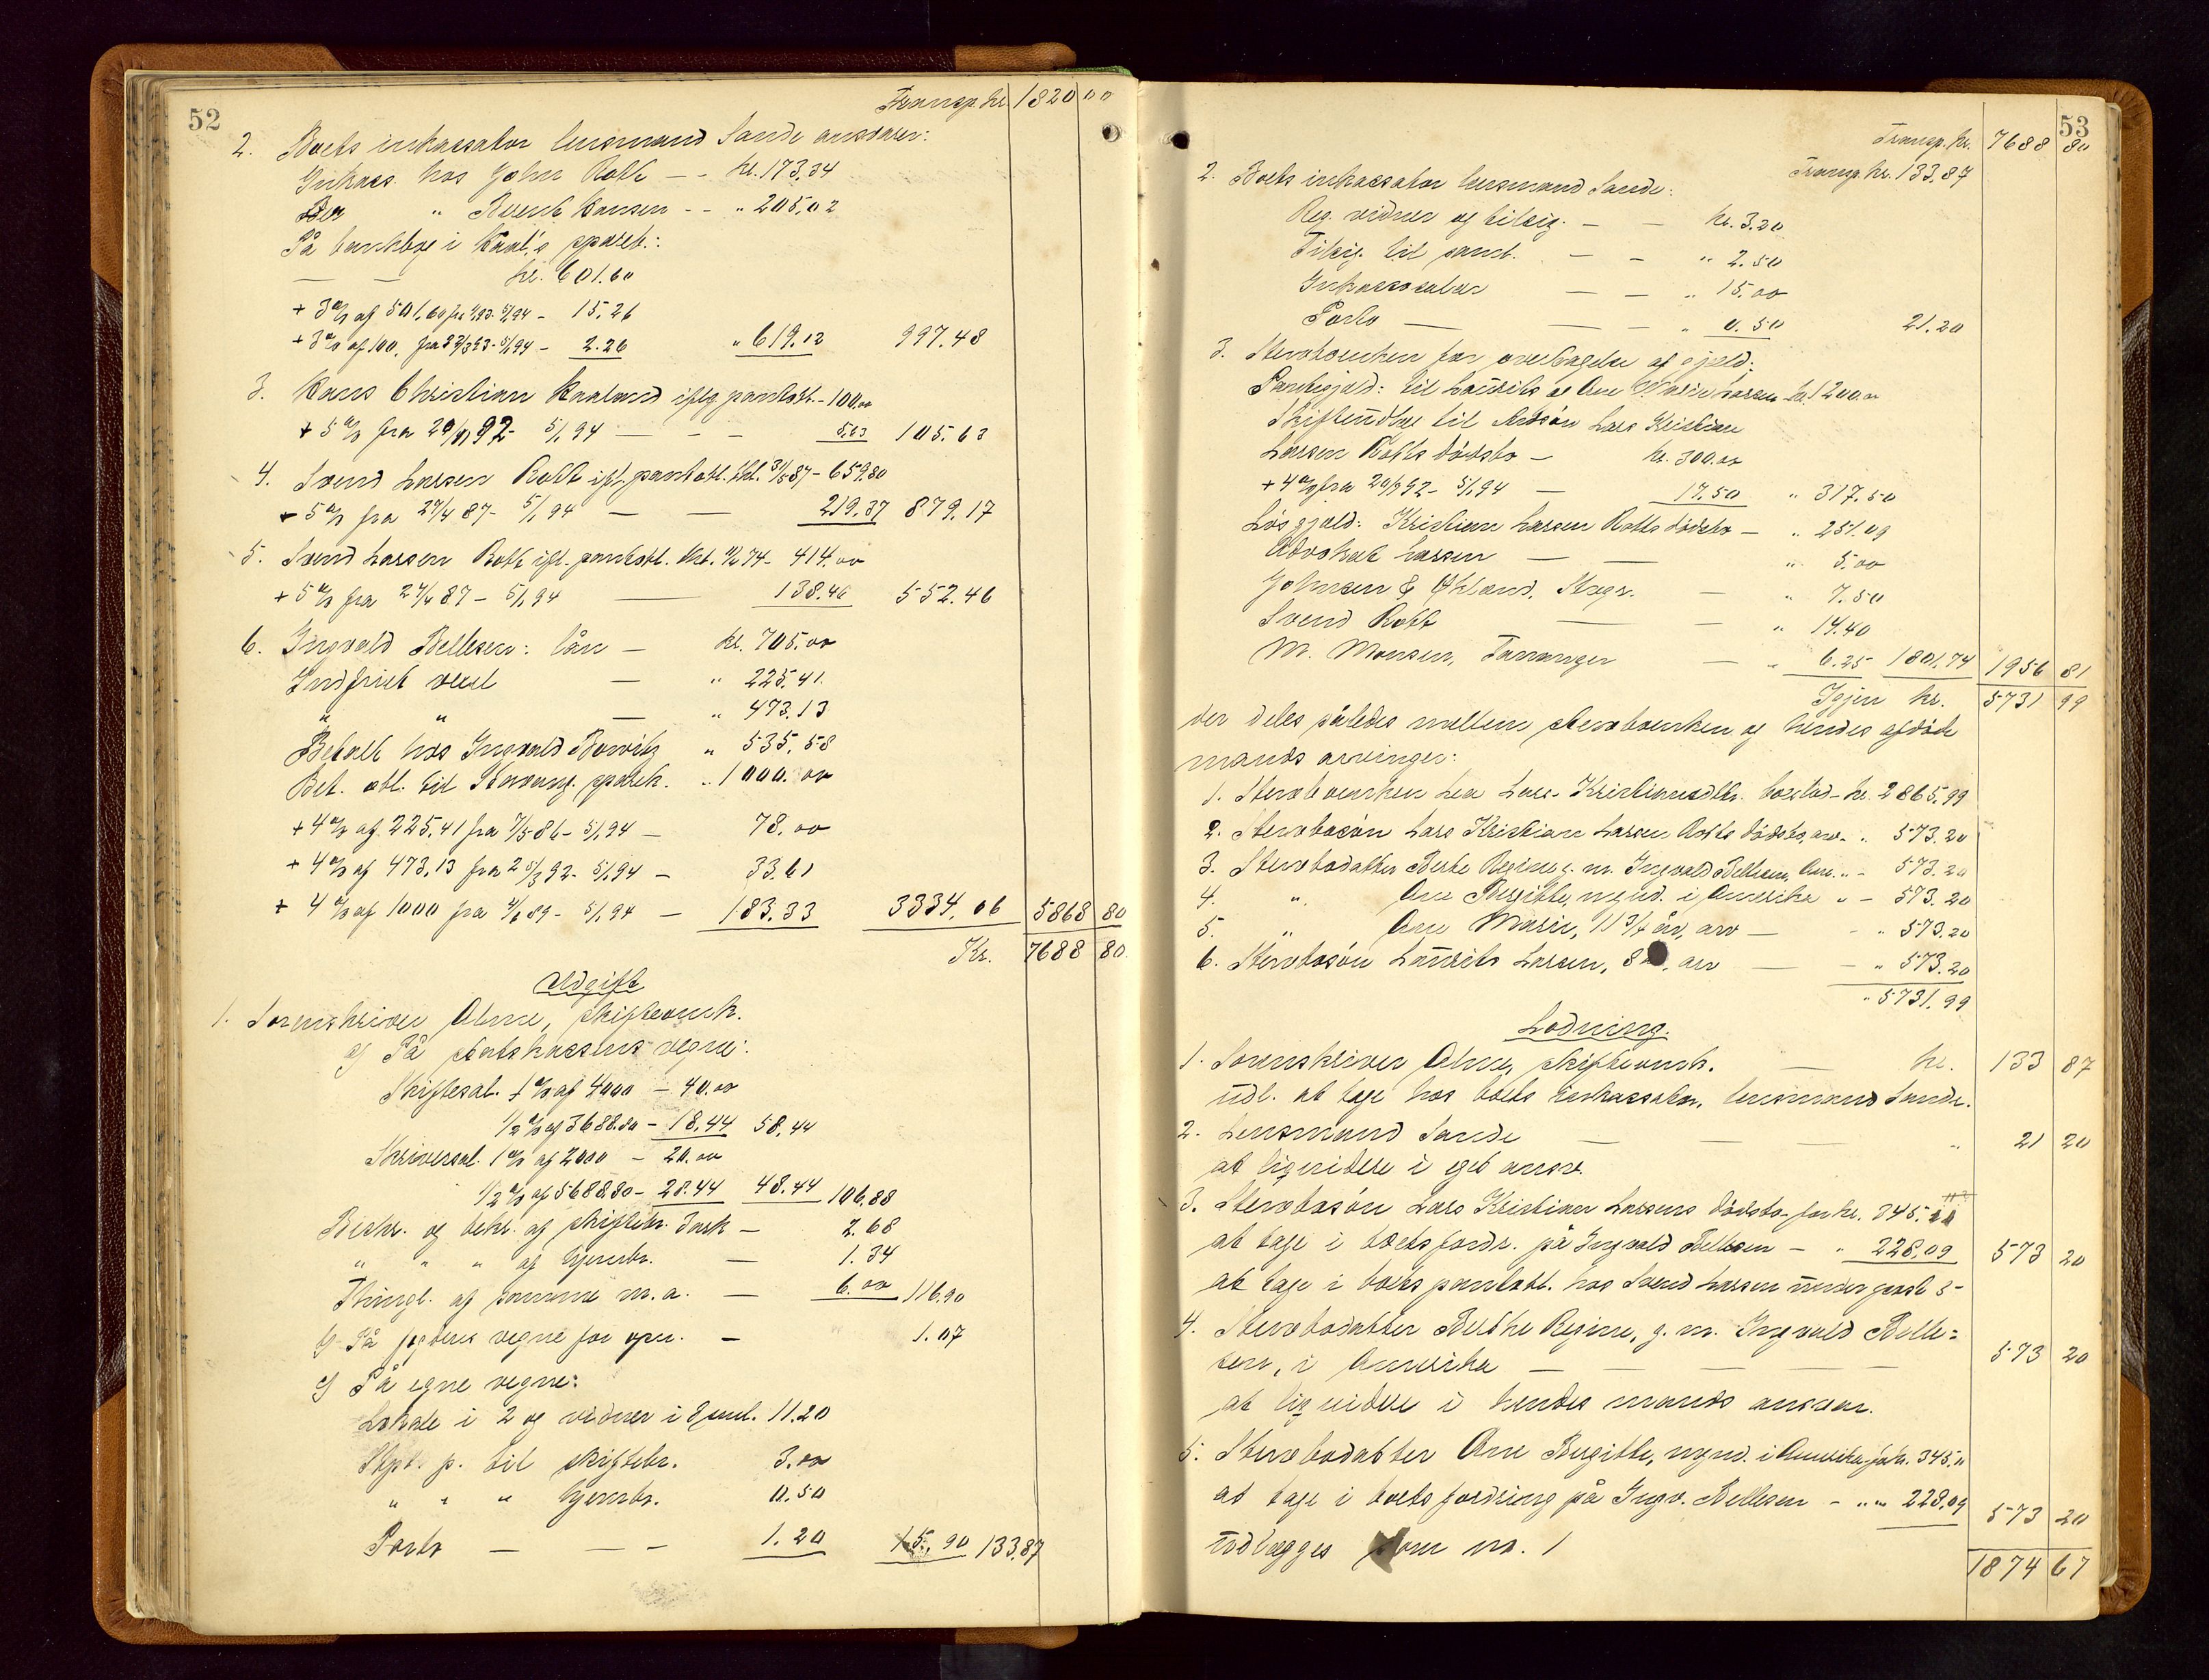 52
Transp. kr. 1820 00
2. Boets inkassator lensmand Sande ansvarer:
Inkass. hos John Rott — - kr. 173.34
Der " Berent Hansen - - " 205.02
På bankbog i Haal.'s spareb.:
— — kr. 601.60
+ 3 % af 501.60 fra 1/1 93 - 5/1 94 - 15.26
+ 3 % af 100, fra 22/3 93 - 5/1 94 - 2.26 " 619.12 997.48
3. Hans Christian Haaland iflg. pantobl. - 100.00
+ 5 % fra 20/11 92 - 5/1 94 — - - 5.63 105.63
4. Svend Larsen Rott ifl. pantobl. thl. 3/5 87 - 659.80
+ 5 % fra 27/4 87 - 5/1 94 — — 219.37 879.17
5. Svend Larsen Rott ifl. pantobl. thl. 74 - 414.00
+ 5 % fra 27/4 87 - 5/1 94 — 138.46 552.46
6. Ingvald Bellesen: lån — kr. 705.00
Indfriet vexel — " 225.41
" " — " 473.13
Betalt hos Ingvald " 535.58
Bet. obl. til Stavang. spareb. " 1000.00
+ 4 % af 225.41 fra 7/5 86 - 5/1 94 — 78.00
+ 4 % af 473.13 fra 25/3 92 - 5/1 94 — 33.61
+ 4 % af 1000 fra 4/6 89 - 5/1 94 — 183.33 3334.06 5868 80
Kr. 7688 80
Udgift
1. Sorenskriver Olme, skifteomk.
a) På statskassens vegne:
Skiftesal. 1 % af 4000 — 40.00
1/2 % af 3688.80 — 18.44 58.44
Skriversal. 1 % af 2000 — 20.00
1/2 % af 5688.80 — 28.44 48.44 106.88
Beskr. og bekr. af skiftebr. Jask — 2.68
" " " af hjembr. — 1.34
Thingl. af samme m.a. — 6.00 116.90
b) På fogdens vegne for opn. — 1.07
c) På egne vegne:
Lokale i 2 og vidner i 2 saml. 11.20
Stpl. p. til skiftebr. 3.00
" " " hjembr. 0.50
Porto — — - 1.20 15.90 133.87
53
Transp. kr. 7688 80
Transp. kr. 133.87
2. Boets inkassator lensmand Sande:
Reg. vidner og tilsig. — — kr. 3.20
Tilsig. til saml. — — " 2.50
Inkassosalær — — " 15.00
Porto — — — " 0.50 21.20
3. Stervboenken for overtagelse af gjæld:
Pantegjæld: til Laurits og Ane Marie Larsen - kr. 1200.00
Skifteudlæg til Arvsøn Lars Kristian
Larsen Rotts dødsbo — kr. 300.00
+ 4 % fra 20/7 92 - 5/1 94 — 17.50 " 317.50
Løsgjæld: Kristian Larsen Rotts dødsbo — " 251.09
Advokat Larsen — — " 5.00
Johnsen & Økland, Skogs. — " 7.50
Svend Rott — — " 14.40
M. Monsen, Tananger — " 6.25 1801.74 1956 81
Igjen kr. 5731 99
der deles således mellem stervboenken og hendes afdøde
mands arvinger:
1. Stervboenken Lea Lars-Kristiansdtr. boslod - kr. 2865.99
2. Stervbosøn Lars Kristian Larsen Rotts dødsbo, arv - " 573.20
3. Stervbodatter Berte Regine g. m. Ingvald Bellesen, Am. " - 573.20
4. " Ane Bergitte, mynd. i Amerika " - 573.20
5. " Ane Marie, 11 3/4 år, arv — - " 573.20
6. Stervbosøn Laurits Larsen, 8 , arv — - " 573.20
" 5731.99
Lodning.
1. Sorenskriver Olme, skifteomk. — kr. 133 87
udl. at tage hos boets inkassator, lensmand Sande.
2. Lensmand Sande — — — " 21 20
at liqvidere i eget ansv.
3. Stervbosøn Lars Kristian Larsens dødsbo - for kr. 345.11
at tage i boets fordr. på Ingvald Bellesen — " 228.09 573 20
at tage i boets pantobl. hos Svend Larsen under post 3 -
4. Stervbodatter Berthe Regine, g. m. Ingvald Belle=
sen, i Amerika — — — 573 20
at liqvidere i hendes mands ansvar.
5. Stervbodatter Ane Bergitte, mynd. i Amerika - for kr. 345.11
at tage i boets fordring på Ingv. Bellesen - " " 228.09 573 20
udlægges som no. 1
1874 67